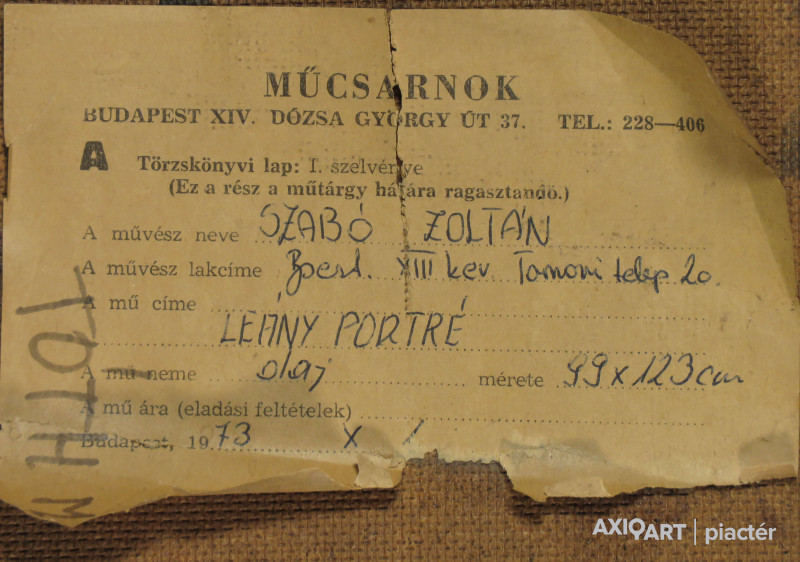 MŰCSARNOK
BUDAPEST XIV. DÓZSA GYÖRGY ÚT 37. TEL.: 228—406
A Törzskönyvi lap: I. szelvénye
(Ez a rész a műtárgy hátára ragasztandó.)
A művész neve SZABÓ ZOLTÁN
A művész lakcíme Bpest. XIII ker telep 20.
A mű címe
LEÁNY PORTRÉ
A mű neme olaj mérete 99 x 123 cm
A mű ára (eladási feltételek)
Budapest, 1973 X /
TÓTH M
AXIOART | piactér